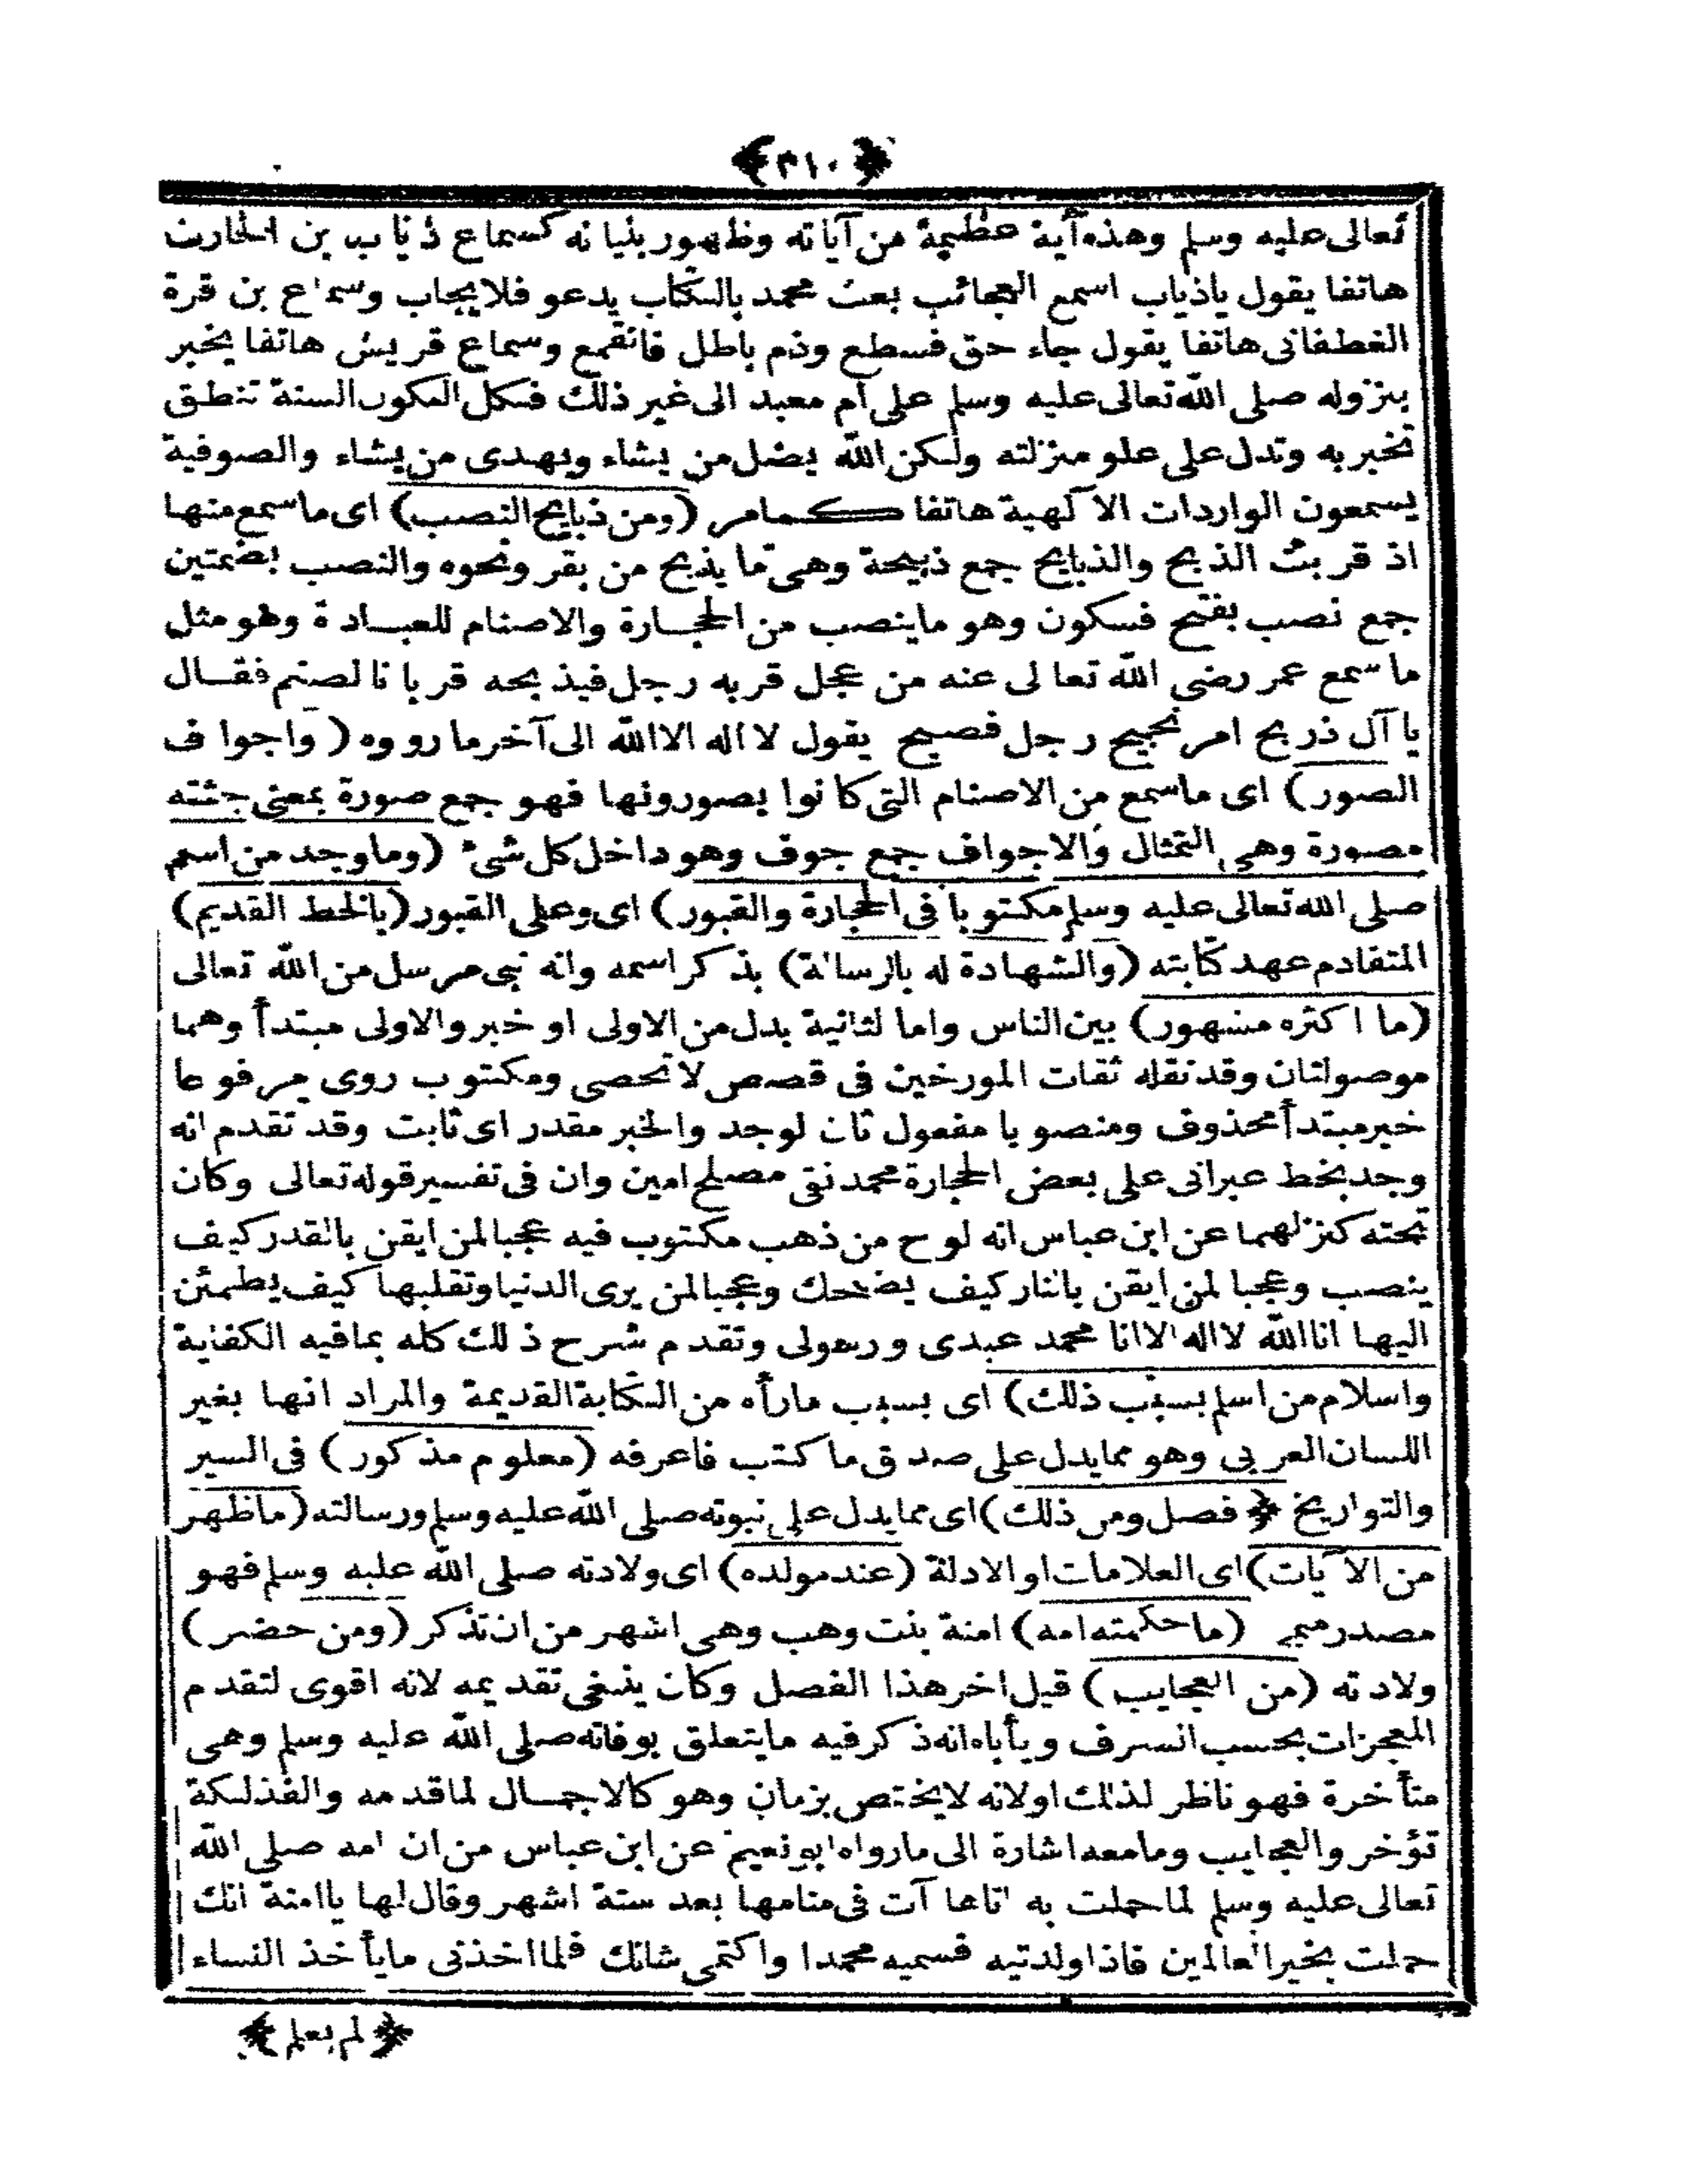 ﴿ ٣١٠ ﴾
تعالى عليه وسلم وهذه آية عظيمة من آياته وظهور بنيانه كسماع ذئاب بن الحارث
هاتفا يقول ياذياب اسمع العجائب بعث محمد بالكتاب يدعو فلايجاب وسماع بن قرة
الغطفانى هاتفا يقول جاء حق فسطع وذم باطل فانقمع وسماع قريش هاتفا يخبر
بنزوله صلى الله تعالى عليه وسلم على ام معبد الى غير ذلك فكل المكون السنة تنطق
تخبر به وتدل على علو منزلته ولكن الله يضل من يشاء ويهدى من يشاء والصوفية
يسمعون الواردات الآلهية هاتفا كمامر (ومن ذبايح النصب) اى ماسمع منها
اذ قربت الذبح والذبايح جمع ذبيحة وهى ما يذبح من بقر ونحوه والنصب بضمتين
جمع نصب بفتح فسكون وهو ماينصب من الحجارة والاصنام للعبادة وهو مثل
ماسمع عمر رضى الله تعالى عنه من عجل قربه رجل فيذبحه قربانا لصنم فقال
يا آل ذريح امر نجيح رجل فصيح يقول لا اله الا الله الى آخر مارووه ( واجواف
الصور) اى ماسمع من الاصنام التى كانوا يصورونها فهو جمع صورة بمعنى جثته
مصورة وهى التمثال والاجواف جمع جوف وهو داخل كل شئ (وماوجد من اسم
صلى الله تعالى عليه وسلم مكتوبا فى الحجارة والقبور) اى وعلى القبور (بالخط القديم)
المتقادم عهد كتابته (والشهادة له بالرسالة) بذكر اسمه وانه نبى مرسل من الله تعالى
(ما اكثره مشهور) بين الناس واما لثانية بدل من الاولى او خبر والاولى مبتدأ وهما
موصولتان وقد نقله ثقات المورخين فى قصص لاتحصى ومكتوب روى مرفوعا
خبر مبتدأ محذوف ومنصوبا مفعول ثان لوجد والخبر مقدر اى ثابت وقد تقدم انه
وجد بخط عبرانى على بعض الحجارة محمد نقى مصلح امين وان فى تفسير قوله تعالى وكان
تحته كنز لهما عن ابن عباس انه لوح من ذهب مكتوب فيه عجبا لمن ايقن بالقدر كيف
ينصب وعجبا لمن ايقن بالنار كيف يضحك وعجبا لمن يرى الدنيا وتقلبها كيف يطمئن
اليها انا الله لا اله الا انا محمد عبدى ورسولى وتقدم شرح ذلك كله بمافيه الكفاية
واسلام من اسلم بسبب ذلك) اى بسبب مارأه من الكتابة القديمة والمراد انها بغير
اللسان العربى وهو ممايدل على صدق ما كتب فاعرفه (معلوم مذكور) فى السير
والتواريخ ﴿ فصل ومن ذلك) اى ممايدل على نبوته صلى الله عليه وسلم ورسالته (ماظهر
من الآيات) اى العلامات او الادلة (عند مولده) اى ولادته صلى الله عليه وسلم فهو
مصدر ميمى (ماحكته امه) امنة بنت وهب وهى اشهر من ان تذكر (ومن حضر)
ولادته (من العجايب) قيل اخر هذا الفصل وكان ينبغى تقديمه لانه اقوى لتقدم
المعجزات بحسب الشرف ويأباه انه ذكر فيه مايتعلق بوفاته صلى الله عليه وسلم وهى
متأخرة فهو ناظر لذلك اولانه لايختص بزمان وهو كالاجمال لماقدمه والفذلكة
تؤخر والعجايب ومامعه اشارة الى مارواه ابو نعيم عن ابن عباس من ان امه صلى الله
تعالى عليه وسلم لما حملت به اتاها آت فى منامها بعد ستة اشهر وقال لها ياامنة انك
حملت بخير العالمين فاذا ولدتيه فسميه محمدا واكتمى شانك فلما اخذنى مايأخذ النساء
﴿ لم يعلم ﴾